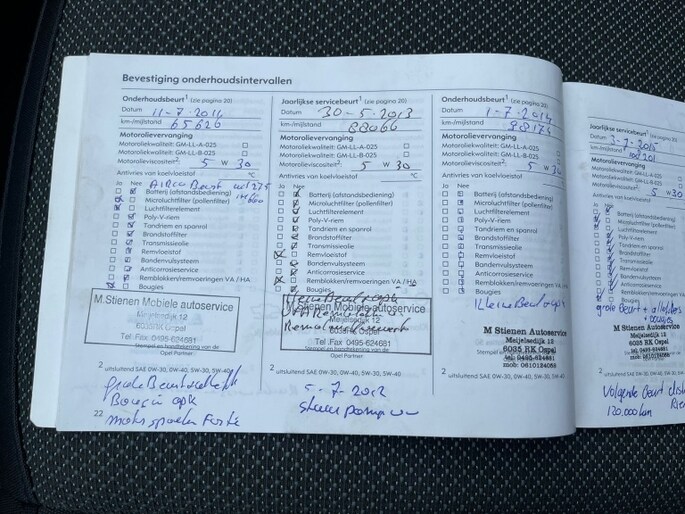 Bevestiging onderhoudsintervallen
Onderhoudsbeurt¹ (zie pagina 20)
Datum 11-7-2011
km-/mijlstand 65626
Motorolievervanging
Motoroliekwaliteit: GM-LL-A-025
GM-LL-B-025
Motorolieviscositeit²: 5 W 30
Antivries van koelvloeistof °C
Ja Nee Airco Beurt
Batterij (afstandsbediening)
Microluchtfilter (pollenfilter)
Luchtfilterelement
Poly-V-riem
Tandriem en spanrol
Brandstoffilter
Transmissieolie
Remvloeistof
Bandenvulsysteem
Anticorrosieservice
Remblokken/remvoeringen VA / HA
Bougies
M.Stienen Mobiele autoservice
Meijelsedijk 12
6035RK Ospel
Tel .Fax 0495-624681
Opel Partner
² uitsluitend SAE 0W-30, 0W-40, 5W-30, 5W-40
grote Beurt
Bougie
22
Jaarlijkse servicebeurt¹ (zie pagina 20)
Datum 30-5-2013
km-/mijlstand 88066
Motorolievervanging
Motoroliekwaliteit: GM-LL-A-025
GM-LL-B-025
Motorolieviscositeit²: 5 W 30
Antivries van koelvloeistof °C
Ja Nee
Batterij (afstandsbediening)
Microluchtfilter (pollenfilter)
Luchtfilterelement
Poly-V-riem
Tandriem en spanrol
Brandstoffilter
Transmissieolie
Remvloeistof
Bandenvulsysteem
Anticorrosieservice
Remblokken/remvoeringen VA / HA
Bougies
Kleine Beurt
M.Stienen Mobiele autoservice
Meijelsedijk 12
6035RK Ospel
Tel .Fax 0495-624681
Opel Partner
² uitsluitend SAE 0W-30, 0W-40, 5W-30, 5W-40
5-7-2012
Onderhoudsbeurt¹ (zie pagina 20)
Datum 1-7-2014
km-/mijlstand 98174
Motorolievervanging
Motoroliekwaliteit: GM-LL-A-025
GM-LL-B-025
Motorolieviscositeit²: 5 W
Antivries van koelvloeistof
Ja Nee
Batterij (afstandsbediening)
Microluchtfilter (pollenfilter)
Luchtfilterelement
Poly-V-riem
Tandriem en spanrol
Brandstoffilter
Transmissieolie
Remvloeistof
Bandenvulsysteem
Anticorrosieservice
Remblokken/remvoeringen VA / HA
Bougies
Kleine Beurt
M Stienen Autoservice
Meijelsedijk 12
6035 RK Ospel
tel. 0495-624681
mob: 0610124068
² uitsluitend SAE 0W-30, 0W-40, 5W-30, 5W-
Jaarlijkse servicebeurt¹ (zie pagina
Datum 3-7-2015
km-/mijlstand
Motorolievervanging
Motoroliekwaliteit: GM-LL-A-025
GM-LL-B-025
Motorolieviscositeit²: 5 W 30
Antivries van koelvloeistof
Ja Nee
Batterij (afstandsbediening)
Microluchtfilter (pollenfilter)
Luchtfilterelement
Poly-V-riem
Tandriem en spanrol
Brandstoffilter
Transmissieolie
Remvloeistof
Bandenvulsysteem
Anticorrosieservice
Remblokken/remvoeringen
Bougies
grote Beurt +
+ bougies
M Stienen Autoservice
Meijelsedijk 12
6035 RK Ospel
tel. 0495-624681
mob: 0610124068
² uitsluitend SAE 0W-30, 0W-40, 5W-
Volgende Beurt
120.000 km